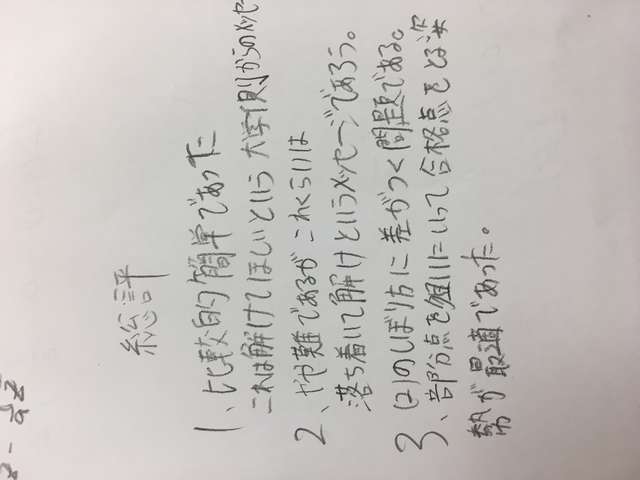 総評
1、比較的簡単であった
これは解けてほしいという大学側からのメッセ
2、やや難であるがこれくらいは
落ち着いて解けというメッセージであろう。
3、(2)のしぼり方に差がつく問題である。
部分点を狙いにいって合格点をとる姿
勢が最適であった。